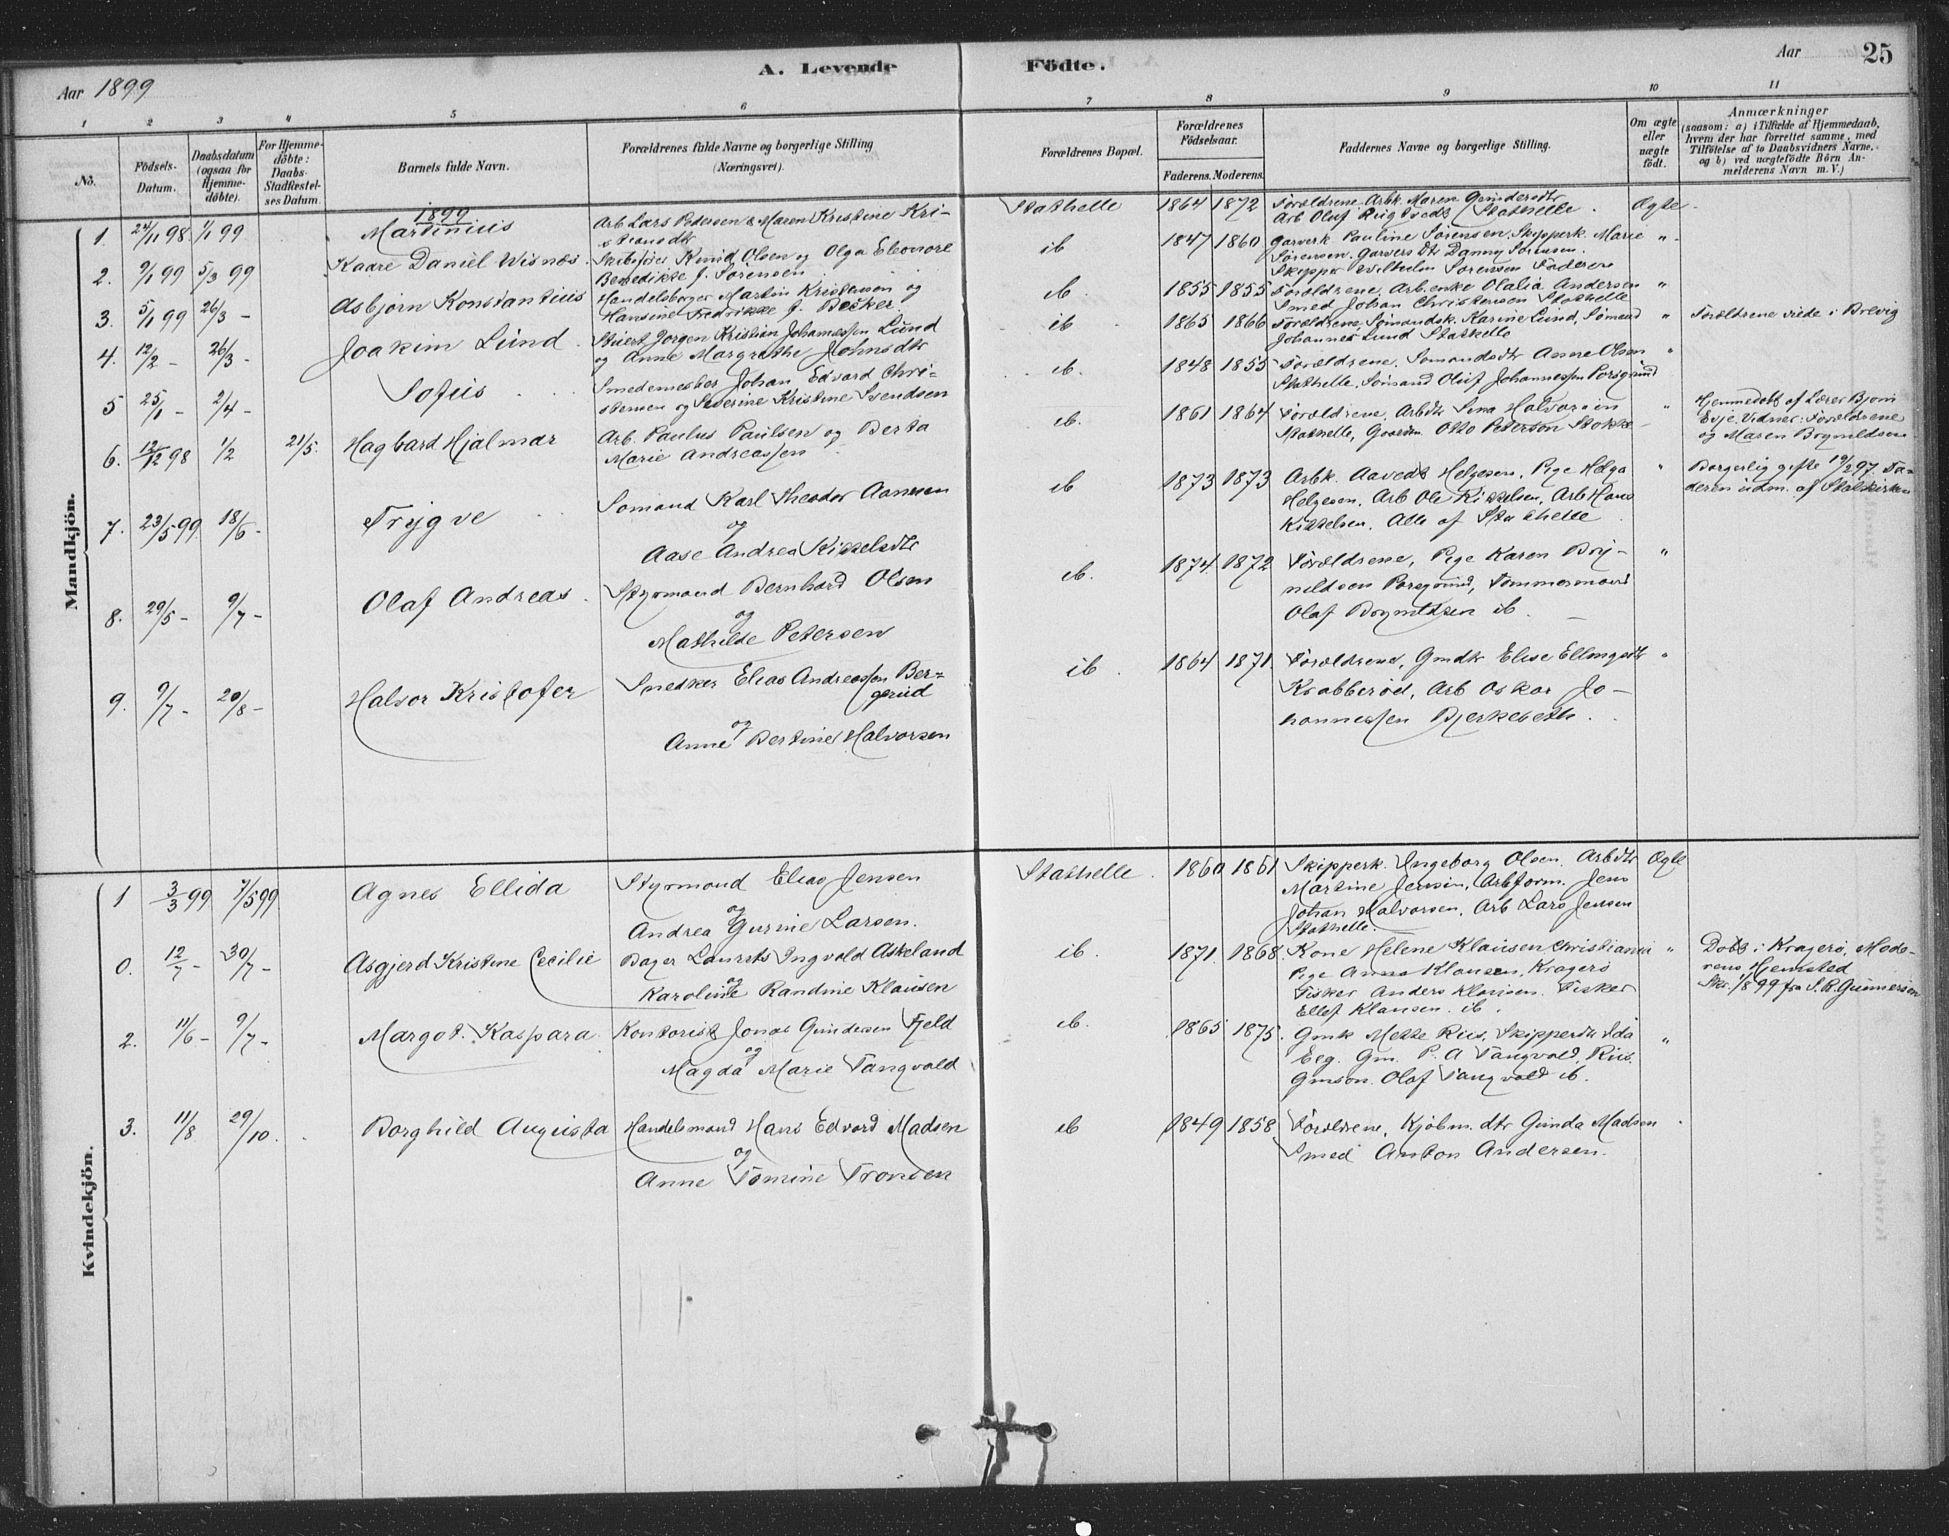 Aar 1899
A. Levende Födte.
Aar 25
1 2 3 4 5 6 7 8 9 10 11
No.
Födsels-Datum.
Daabsdatum (ogsaa for Hjemmedöbte).
For Hjemmedöbte: Daabs-Stadfæstelses Datum.
Barnets fulde Navn.
Forældrenes fulde Navne og borgerlige Stilling
(Næringsvei).
Forældrenes Bopæl.
Forældrenes Födselsaar.
Faderens. Moderens.
Faddernes Navne og borgerlige Stilling.
Om ægte eller uægte födt.
Anmærkninger
(saasom: a) i Tilfælde af Hjemmedaab, hvem der har forrettet samme, med Tilföielse af to Daabsvidners Navne, og b) ved uægtefödte Börn Anmelderens Navn m. V.)
Mandkjön.
1899
1. 24/11 98 1/1 99 Martinius
Arb Lars Petersen & Maren Kristine Kri-
stiansdtr
Stathelle 1864 1872
Forældrene. Arbk Maren Gundersdtr
Arb Olaf Stathelle.
Ægte.
2. 9/1 99 5/3 99 Kaare Daniel Wisnæs
Skibsfører Knud Olsen og Olga Eleonore
Benedikte J. Sørensen
ib 1847 1860
Garverk Pauline Sørensen, Skipperk. Marie
Sørensen, Garvers dtr Danny Sørensen.
Skipper Wilhelm Sørensen Faderen
"
3. 5/1 99 26/3 - Asbjørn Konstantius
Handelsborger Martin Kristensen og
Hansine Fredrikke J. Becker.
ib. 1855 1855
Forældrene, Arb.enke Olalia Andersen
Smed Johan Christensen Stathelle
"
4. 12/2 - 26/3 - Joakim Lund
Stuert Jørgen Kristian Johanessen Lund
og Anne Margrethe Johnsdtr
ib 1865 1866
Forældrene, Sømandsk. Karine Lund, Sømand
Johannes Lund Stathelle
"
Forældrene viede i Brevig
5 25/1 - 2/4 - Sofus
Smedemester Johan Edvard Chri-
stensen og Severine Kristine Svendsen
ib. 1848 1855
Forældrene, Sømandsdtr Anne Olsen
Stathelle, Sømand Oluf Johannessen Porsgrund
"
6. 12/12 98 1/2 21/5. Hagbart Hjalmar
Arb. Paulus Paulsen og Berta
Marie Andreassen
ib. 1861 1864
Forældrene, Arbdtr Lina Halvorsen
Stathelle, Otto Peterson Stokke
"
Hjemmedøbt af Lærer Bjørn
Evje. Vidner: Forældrene
og Maren Brynildsen
7. 23/5 99 18/6 - Trygve
Sømand Karl Theodor Aanesen
og
Aase Andrea Kittelsdtr
ib 1873 1873
Arbk. Aavedt Helgesen, Pige Helga
Helgesen, Arb Ole Kittelsen, Arb Hans
Kittelsen. Alle af Stathelle
"
Borgerlig gifte 19/2 97. Fa-
deren udm. af Statskirken
8. 29/5 - 9/7 - Olaf Andreas
Styrmand Bernhard Olsen
og
Mathilde Petersen
ib. 1874 1872
Forældrene, Pige Karen Bry-
nildsen Porsgrund, Tømmermand
Olaf Brynildsen ib.
"
9. 9/7 - 20/8 - Halvor Kristofer
Snedker Elias Andreassen Ber-
gerud
og
Anne Bertine Halvorsen
ib 1864 1871
Forældrene, Gmdtr Elise Ellingsdtr
Krabberød, Arb Oskar Jo-
hannessen Bjerkebæk.
"
Kvindekjön.
1 3/3 99 7/5 99 Agnes Ellida
Styrmand Elias Jensen
og
Andrea Gurine Larsen.
Stathelle. 1860 1861
Skipperk. Ingeborg Olsen. Arbdtr
Martine Jensen, Arbform. Jens
Johan Halvorsen, Arb Lars Jensen
Stathelle.
Ægte
0. 12/7 - 30/7 - Asgjerd Kristine Cecilie
Bager Laurets Ingvald Askeland
og
Karoline Randine Klausen
ib. 1871 1868.
Kone Helene Klausen Christiania
Pige Anna Klausen, Kragerø
Fisker Anders Klausen. Fisker
Ellef Klausen. ib.
"
Døbt i Kragerø, Mode-
rens Hjemsted
Skr. 1/8 99 fra S.P. Gunnersen
2. 11/6 - 9/7 - Margot Kaspara
Kontorist Jonas Gundersen Fjeld
og
Magda Marie Tangvald
ib. 1865 1875.
Gmk Mette Riis, Skipperdtr Ida
Eeg. Gm. P. A Tangvald, Riis.
Gmsøn Olaf Tangvald ib.
"
3. 11/8 29/10. Borghild Augusta
Handelsmand Hans Edvard Madsen
og
Anne Tomine Tronsen
ib 1849 1858
Forældrene, Kjøbm. dtr Gunda Madsen
Smed Anton Andersen.